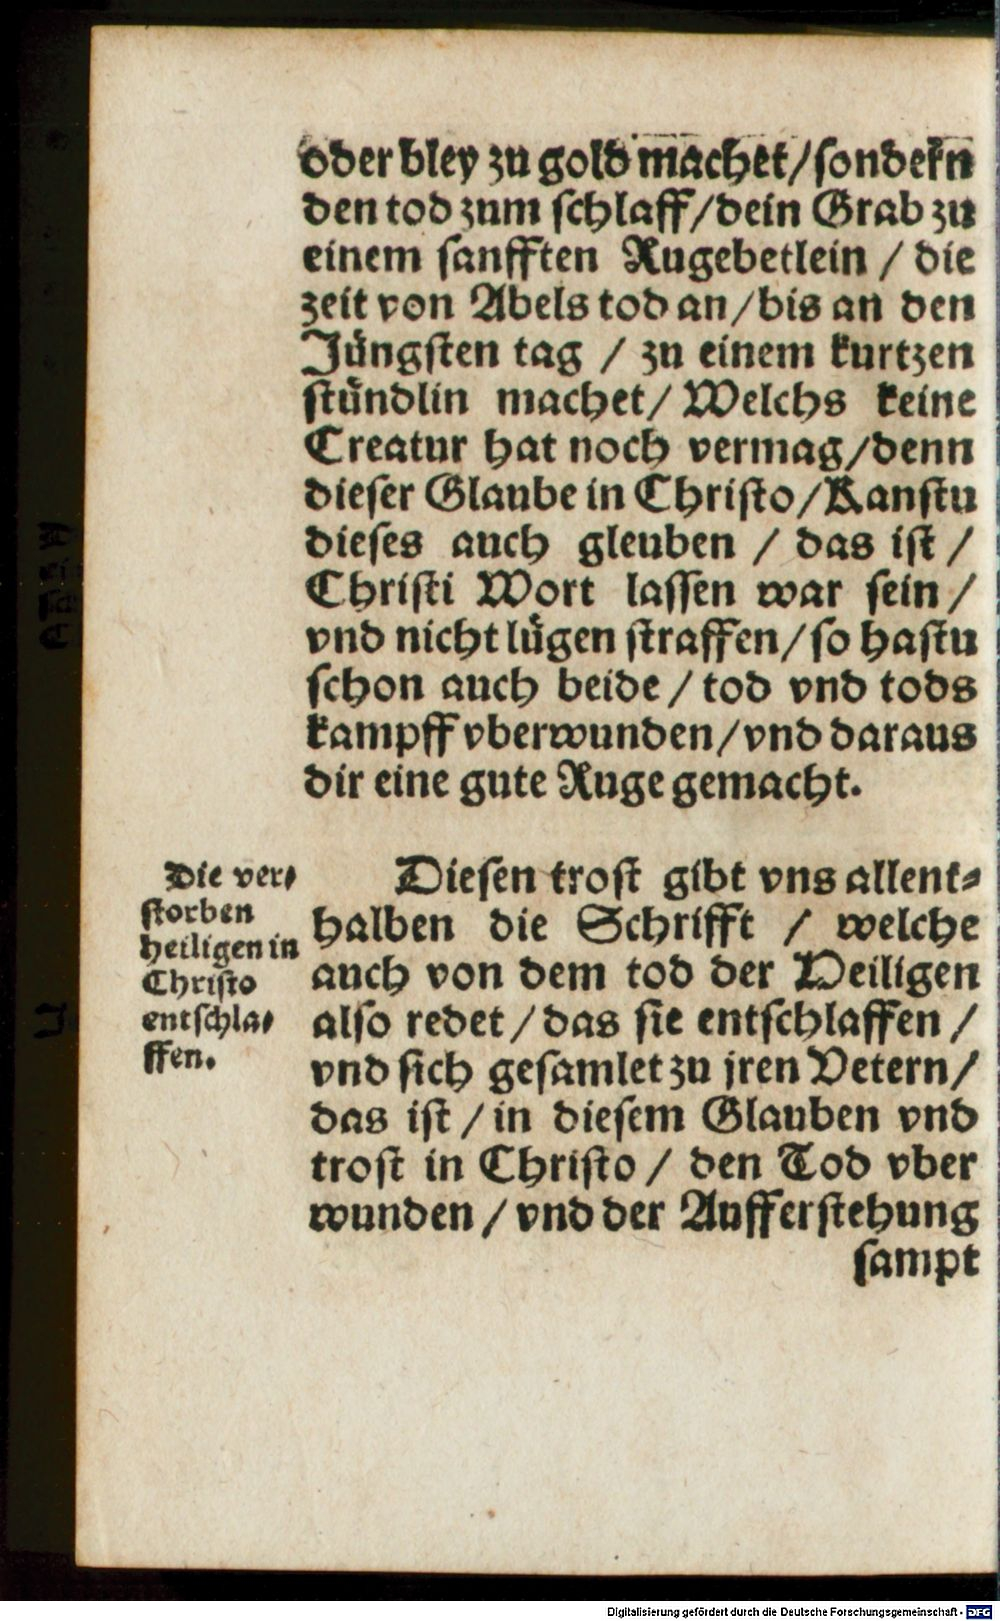 oder bley zu gold machet/sondern
den tod zum schlaff/dein Grab zu
einem sanfften Rugebetlein / die
zeit von Abels tod an/bis an den
Jüngsten tag / zu einem kurtzen
stündlin machet/ Welchs keine
Creatur hat noch vermag/denn
dieser Glaube in Christo/Kanstu
dieses auch gleuben / das ist /
Christi Wort lassen war sein /
vnd nicht lügen straffen/so hastu
schon auch beide / tod vnd tods
kampff vberwunden/vnd daraus
dir eine gute Ruge gemacht.
Die ver⸗
storben
heiligen in
Christo
entschla⸗
ffen.
Diesen trost gibt vns allent⸗
halben die Schrifft / welche
auch von dem tod der Heiligen
also redet / das sie entschlaffen /
vnd sich gesamlet zu jren Vetern/
das ist / in diesem Glauben vnd
trost in Christo / den Tod vber
wunden / vnd der Aufferstehung
sampt
Digitalisierung gefördert durch die Deutsche Forschungsgemeinschaft - DFG